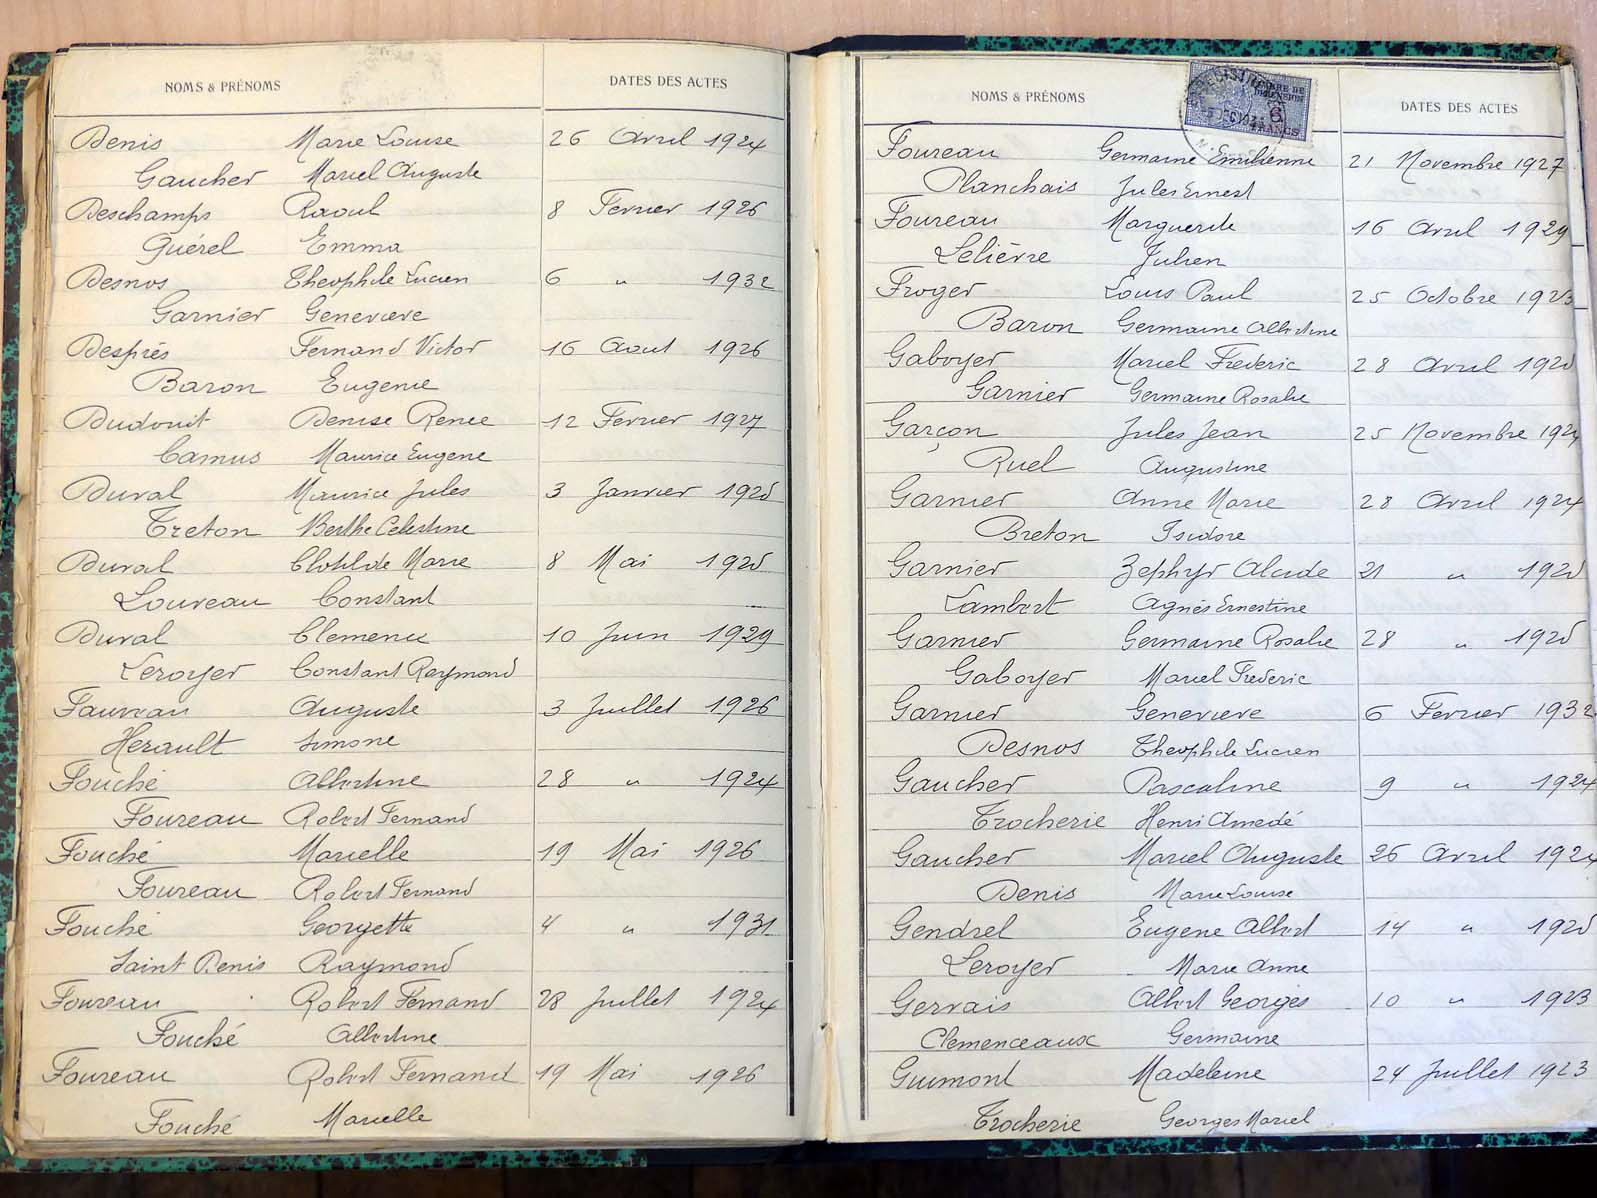 NOMS & PRÉNOMS DATES DES ACTES
Denis Marie Louise 26 Avril 1924
Gaucher Marcel Auguste
Deschamps Raoul 8 Fevrier 1926
Quérel Emma
Desnos Theophile Lucien 6 " 1932
Garnier Genevieve
Després Fernand Victor 16 Aout 1926
Baron Eugenie
Dudouit Denise Renee 12 Fevrier 1927
Camus Maurice Eugene
Duval Maurice Jules 3 Janvier 1925
Creton Berthe Celestine
Duval Clotilde Marie 8 Mai 1925
Louveau Constant
Duval Clemence 10 Juin 1929
Leroyer Constant Raymond
Fauveau Auguste 3 Juillet 1926
Herault Simone
Fouché Albertine 28 " 1924
Foureau Robert Fernand
Fouché Marcelle 19 Mai 1926
Foureau Robert Fernand
Fouché Georgette 4 " 1931
Saint Denis Raymond
Foureau Robert Fernand 28 Juillet 1924
Fouché Albertine
Foureau Robert Fernand 19 Mai 1926
Fouché Marcelle
NOMS & PRÉNOMS DATES DES ACTES
FRANCS
Foureau Germaine Emilienne 21 Novembre 1927
Planchais Jules Ernest
Foureau Marguerite 16 Avril 1929
Lelièvre Julien
Froger Louis Paul 25 Octobre 1923
Baron Germaine Albertine
Gaboyer Marcel Frederic 28 Avril 1925
Garnier Germaine Rosalie
Garçon Jules Jean 25 Novembre 1924
Ruel Augustine
Garnier Anne Marie 28 Avril 1924
Breton Isidore
Garnier Zephyr Alcide 21 " 1925
Lambert Agnès Ernestine
Garnier Germaine Rosalie 28 " 1925
Gaboyer Marcel Frederic
Garnier Genevieve 6 Fevrier 1932
Desnos Theophile Lucien
Gaucher Pascaline 9 " 1924
Trocherie Henri Amedé
Gaucher Marcel Auguste 26 Avril 1924
Denis Marie Louise
Gendrel Eugene Albert 14 " 1925
Leroyer Marie Anne
Gervais Albert Georges 10 " 1923
Clemenceaux Germaine
Guimont Madeleine 24 Juillet 1923
Trocherie Georges Marcel